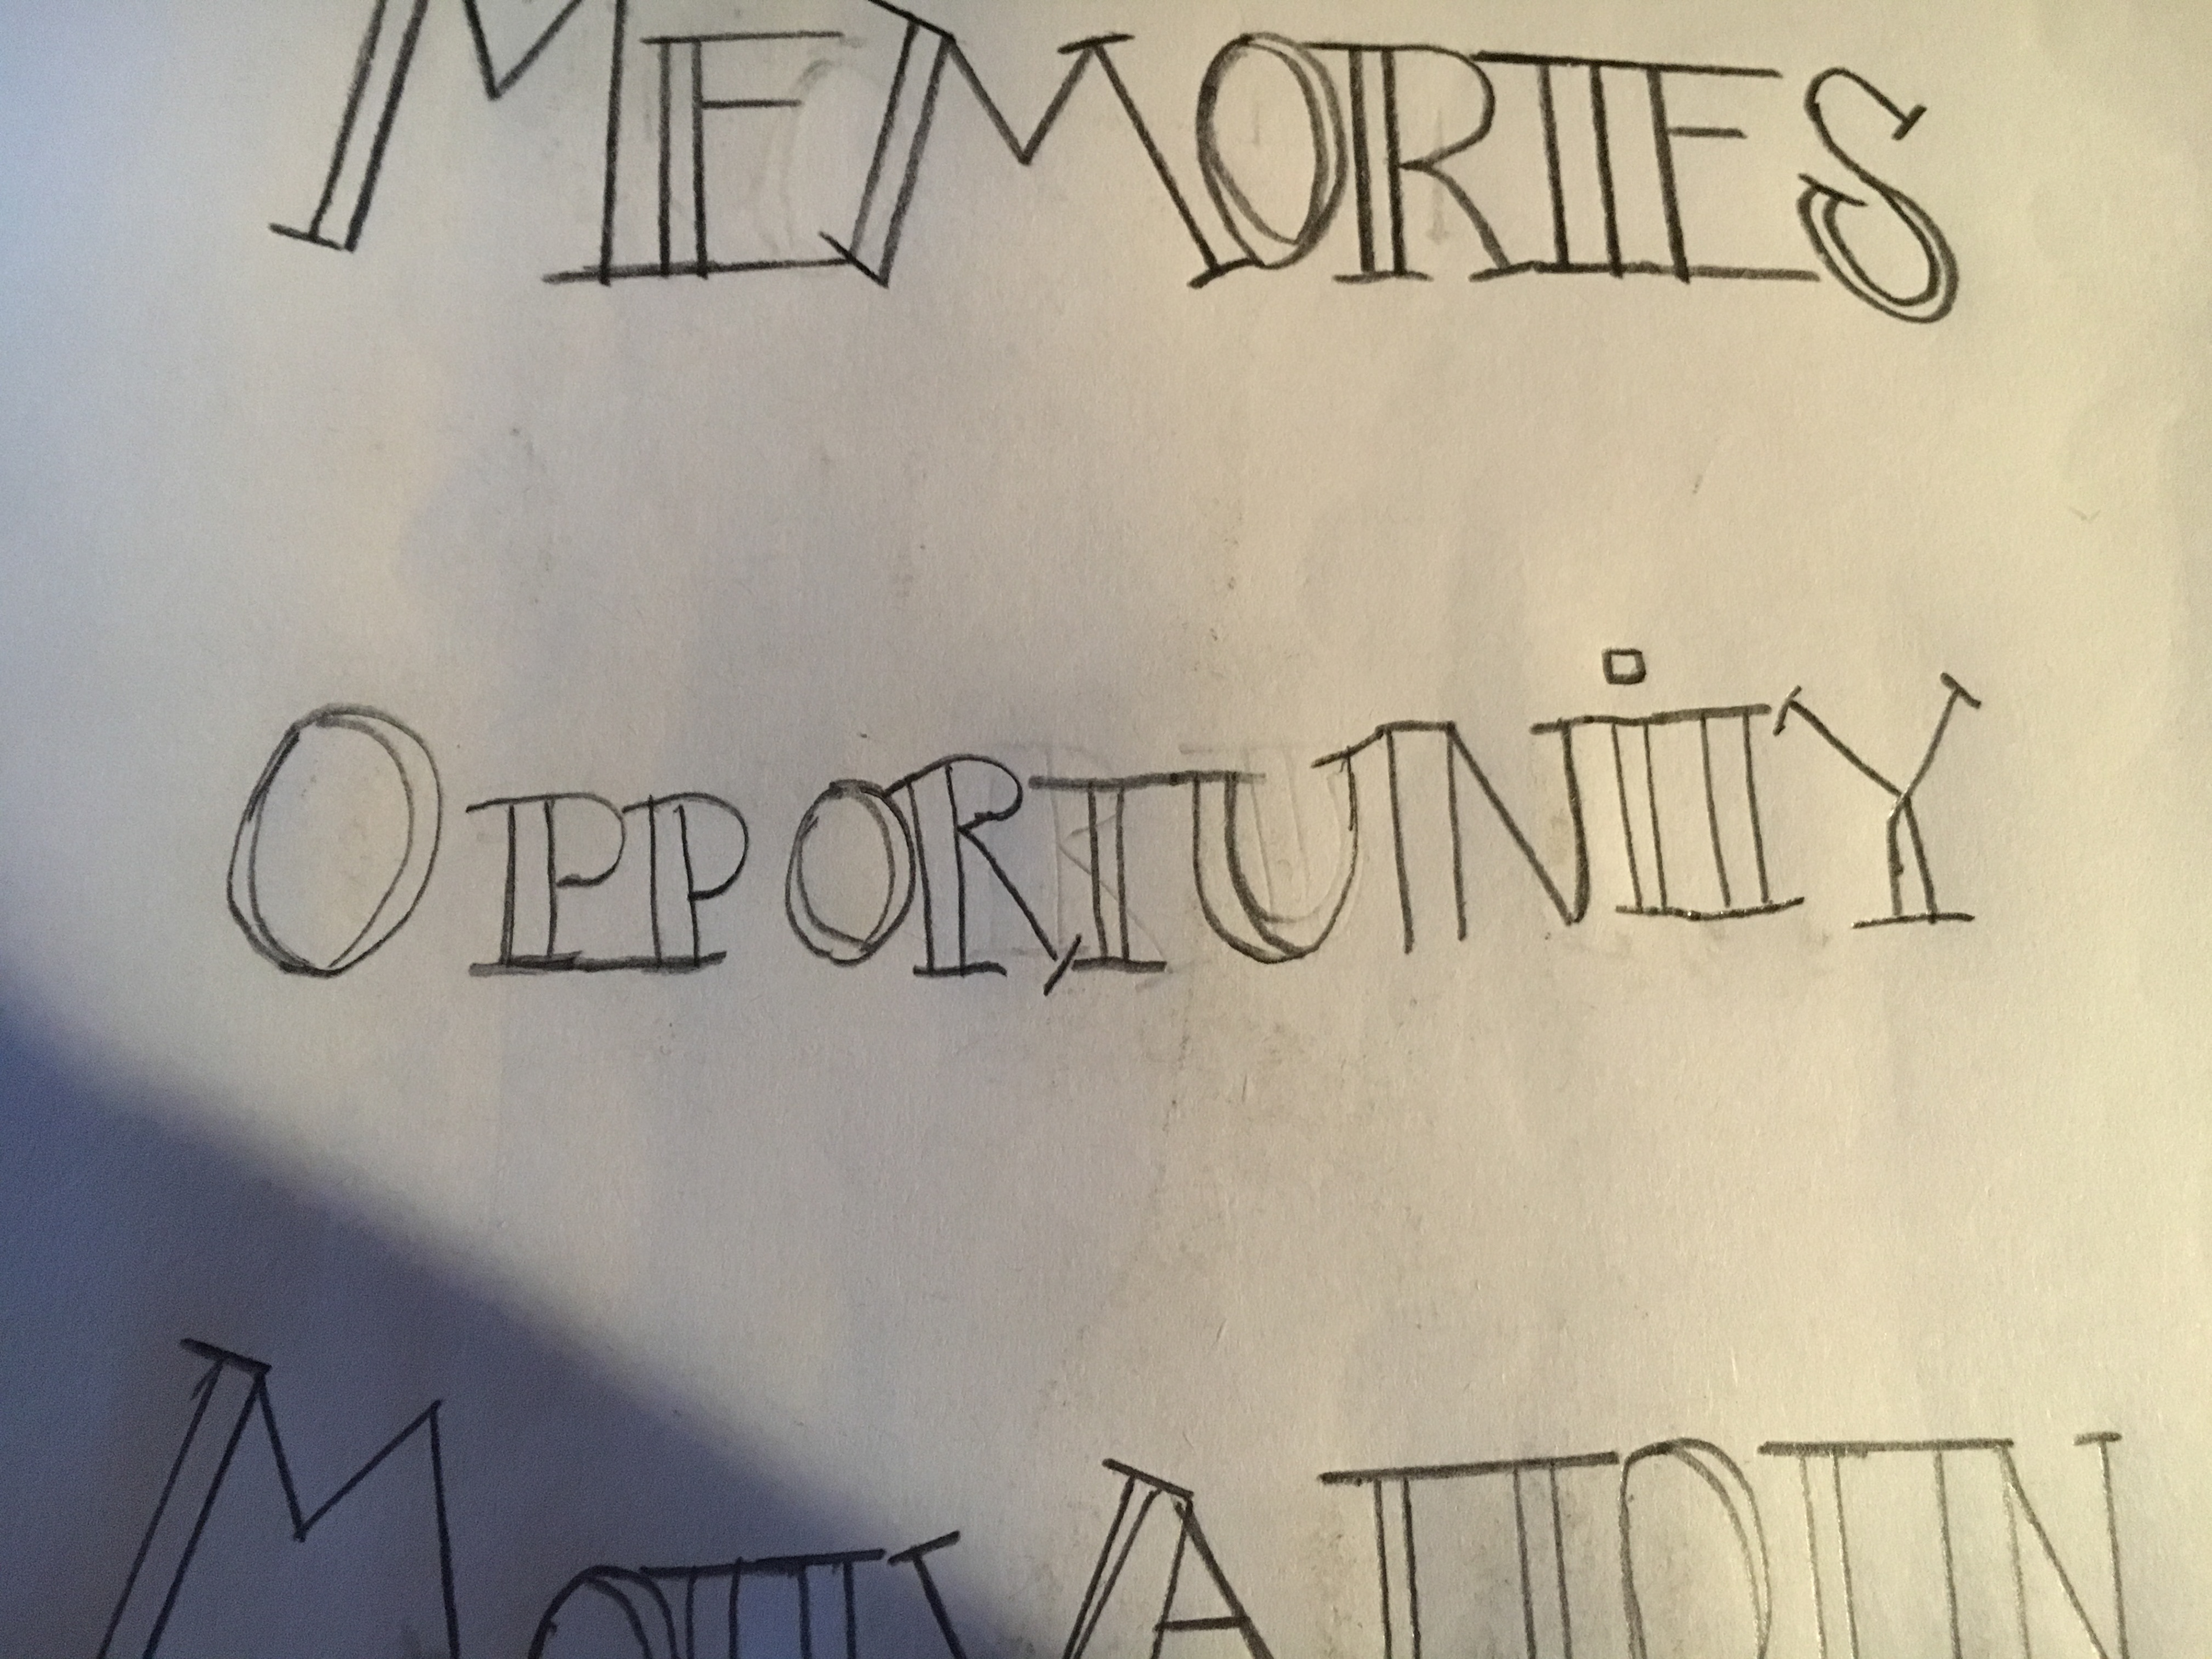 MEMORIES
OPPORTUNiTY
MOTIVATION